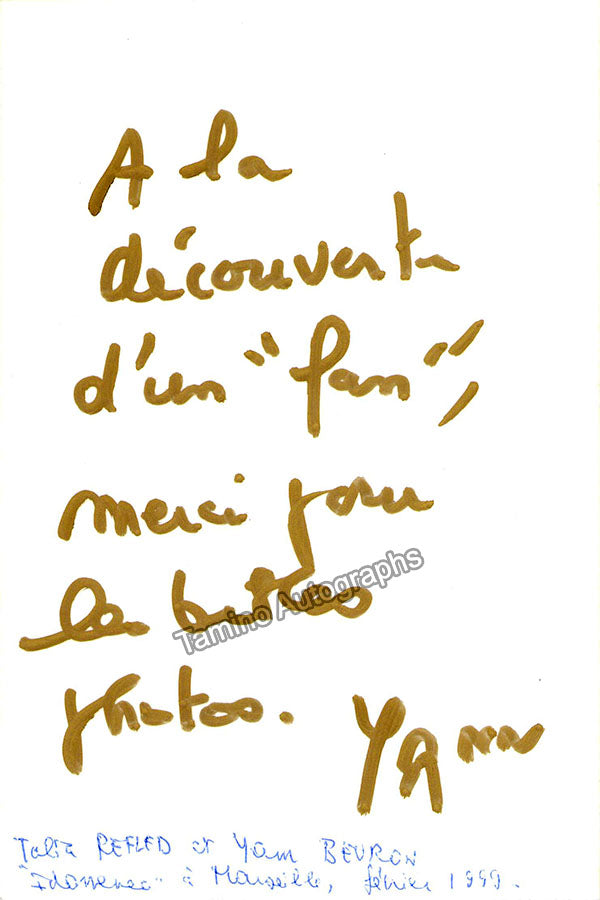 A la
découverte
d'un "fan",
merci pour
les belles
photos.
Yann
Tamino Autographs
Talia REFLED et Yann BEURON
"Idomeneo" à Marseille, février 1999.